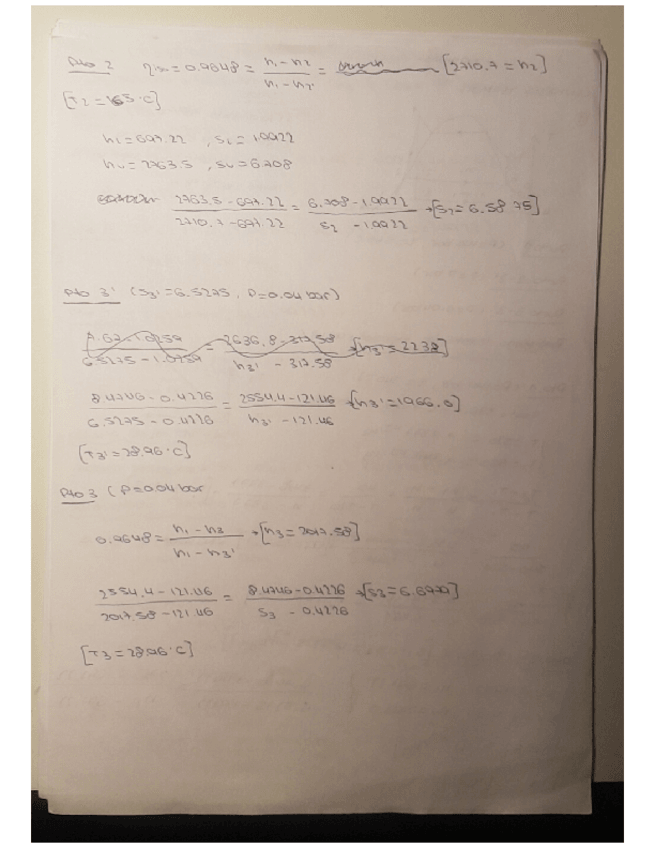 Pto 2 ηis = 0.9648 = (h1 - h2)/(h1 - h2') = [2710.7 = h2]
[T2 = 165 °C]
hL = 697.22 , SL = 1.9922
hv = 2763.5 , Sv = 6.708
(2763.5 - 697.22)/(2710.7 - 697.22) = (6.708 - 1.9922)/(S2 - 1.9922) → [S2 = 6.5875]
Pto 3' (S3' = 6.5275, P=0.04 bar)
(7.67 - 1.0259)/(6.5275 - 1.0259) = (2636.8 - 317.58)/(h3' - 317.58) → [h3' = 2232]
(8.4746 - 0.4226)/(6.5275 - 0.4226) = (2554.4 - 121.46)/(h3' - 121.46) → [h3' = 1966.0]
[T3' = 28.96 °C]
Pto 3 (P=0.04 bar
0.9648 = (h1 - h3)/(h1 - h3') → [h3 = 2017.58]
(2554.4 - 121.46)/(2017.58 - 121.46) = (8.4746 - 0.4226)/(S3 - 0.4226) → [S3 =
[T3 = 28.96 °C]